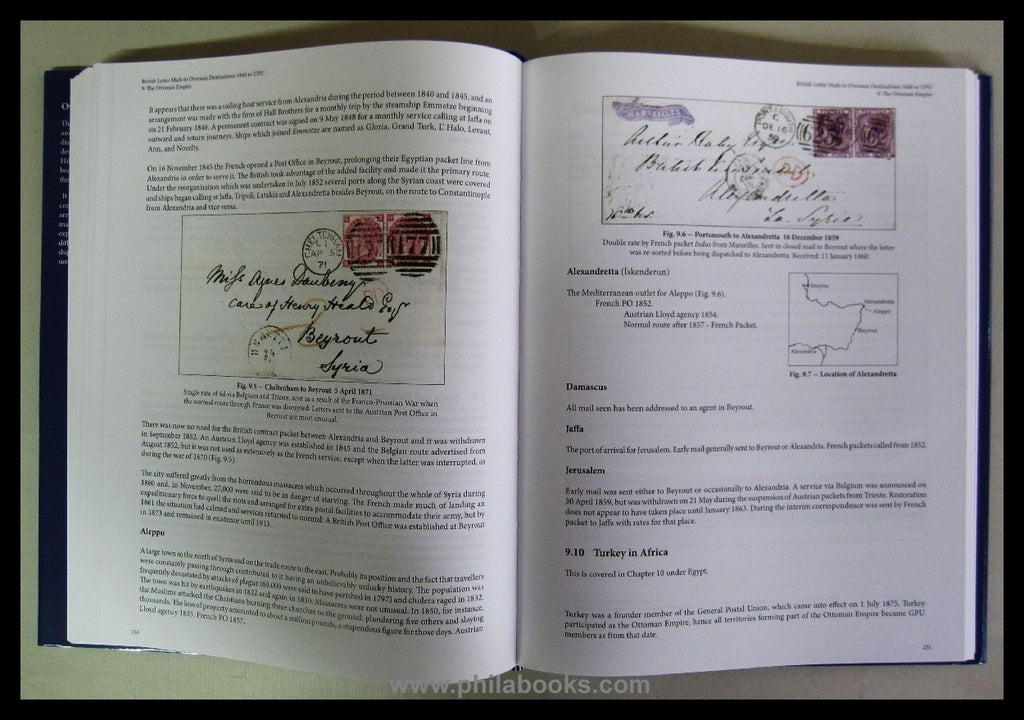 British Letter Mails to Overseas Destinations 1840 to UPU
9: The Ottoman Empire
It appears that there was a sailing boat service from Alexandria during the period between 1840 and 1845, and an
arrangement was made with the firm of Hall Brothers for a monthly trip by the steamship Emmetze beginning
on 21 February 1846. A permanent contract was signed on 9 May 1848 for a monthly service calling at Jaffa on
outward and return journeys. Ships which joined Emmetze are named as Gloria, Grand Turk, L' Halo, Levant,
Ann, and Novelty.
On 16 November 1845 the French opened a Post Office in Beyrout, prolonging their Egyptian packet line from
Alexandria in order to serve it. The British took advantage of the added facility and made it the primary route.
Under the reorganisation which was undertaken in July 1852 several ports along the Syrian coast were covered
and ships began calling at Jaffa, Tripoli, Latakia and Alexandretta besides Beyrout, on the route to Constantinople
from Alexandria and vice versa.
CHELTENHAM
AP 5
71
177
Miss Agnes Daubeny
care of Henry Heald Esqr
Beyrout
Syria
Fig. 9.5 – Cheltenham to Beyrout 5 April 1871
Single rate of 6d via Belgium and Trieste, sent as a result of the Franco-Prussian War when
the normal route through France was disrupted. Letters sent to the Austrian Post Office in
Beyrout are most unusual.
There was now no need for the British contract packet between Alexandria and Beyrout and it was withdrawn
in September 1852. An Austrian Lloyd agency was established in 1845 and the Belgian route advertised from
August 1852, but it was not used as extensively as the French service, except when the latter was interrupted, as
during the war of 1870 (Fig. 9.5).
The city suffered greatly from the horrendous massacres which occurred throughout the whole of Syria during
1860 and, in November, 27,000 were said to be in danger of starving. The French made much of landing an
expeditionary force to quell the riots and arranged for extra postal facilities to accommodate their army, but by
1861 the situation had calmed and services returned to normal. A British Post Office was established at Beyrout
in 1873 and remained in existence until 1913.
Aleppo
A large town in the north of Syria and on the trade route to the east. Probably its position and the fact that travellers
were constantly passing through contributed to it having an unbelievably unlucky history. The population was
frequently devastated by attacks of plague (60,000 were said to have perished in 1797) and cholera raged in 1832.
The town was hit by earthquakes in 1822 and again in 1830. Massacres were not unusual. In 1850, for instance,
the Muslims attacked the Christians burning three churches to the ground, plundering five others and slaying
thousands. The loss of property amounted to about a million pounds, a stupendous figure for those days. Austrian
Lloyd agency 1855. French PO 1857.
250
British Letter Mails to Overseas Destinations 1840 to UPU
9: The Ottoman Empire
MARSEILLES
PORTSMOUTH
C
DE 16
59
British
Alexandretta
La Syria
Fig. 9.6 – Portsmouth to Alexandretta 16 December 1859
Double rate by French packet Indus from Marseilles. Sent in closed mail to Beyrout where the letter
was re-sorted before being dispatched to Alexandretta. Received: 11 January 1860.
Alexandretta (Iskenderun)
The Mediterranean outlet for Aleppo (Fig. 9.6).
French PO 1852.
Austrian Lloyd agency 1854.
Normal route after 1857 - French Packet.
Smyrna
Alexandretta
Aleppo
Beyrout
Alexandria
Fig. 9.7 – Location of Alexandretta
Damascus
All mail seen has been addressed to an agent in Beyrout.
Jaffa
The port of arrival for Jerusalem. Early mail generally sent to Beyrout or Alexandria. French packets called from 1852.
Jerusalem
Early mail was sent either to Beyrout or occasionally to Alexandria. A service via Belgium was announced on
30 April 1859, but was withdrawn on 21 May during the suspension of Austrian packets from Trieste. Restoration
does not appear to have taken place until January 1863. During the interim correspondence was sent by French
packet to Jaffa with rates for that place.
9.10 Turkey in Africa
This is covered in Chapter 10 under Egypt.
Turkey was a founder member of the General Postal Union, which came into effect on 1 July 1875. Turkey
participated as the Ottoman Empire, hence all territories forming part of the Ottoman Empire became GPU
members as from that date.
251
www.philabooks.com